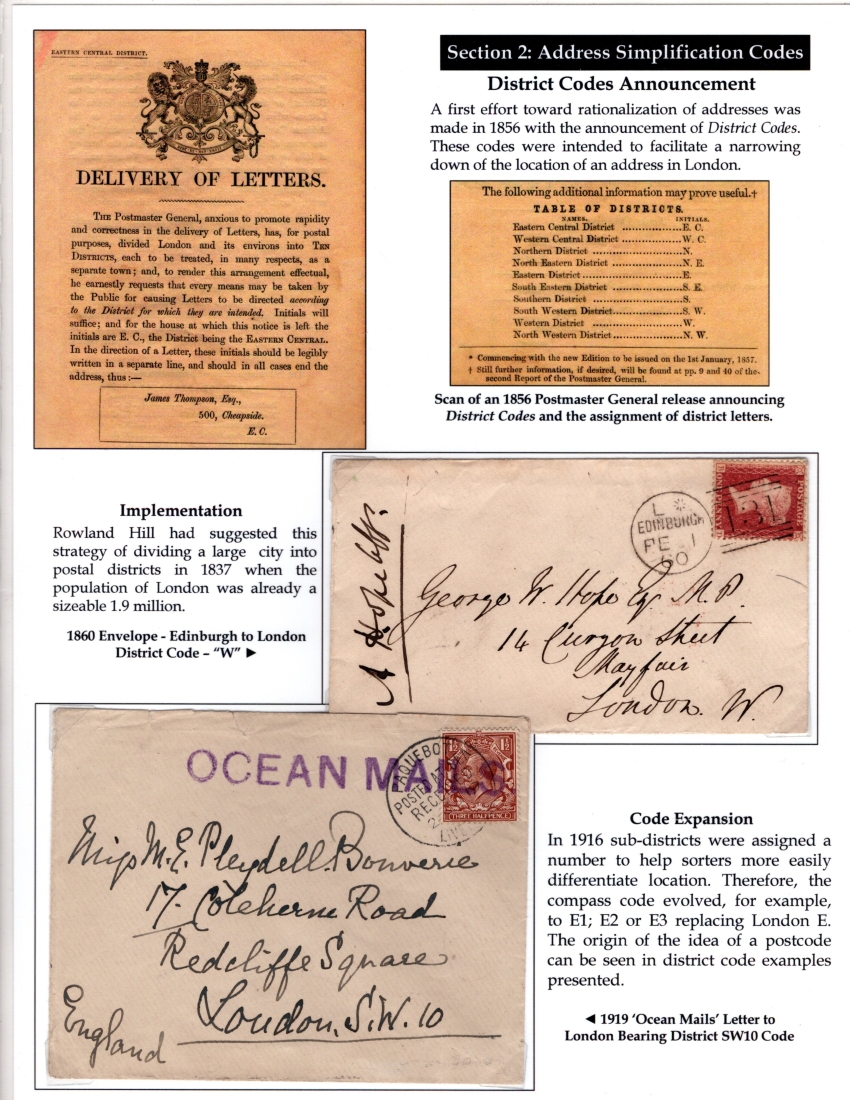 EASTERN CENTRAL DISTRICT.
DELIVERY OF LETTERS.
THE Postmaster General, anxious to promote rapidity
and correctness in the delivery of Letters, has, for postal
purposes, divided London and its environs into TEN
DISTRICTS, each to be treated, in many respects, as a
separate town; and, to render this arrangement effectual,
he earnestly requests that every means may be taken by
the Public for causing Letters to be directed according
to the District for which they are intended. Initials will
suffice; and for the house at which this notice is left the
initials are E. C., the District being the EASTERN CENTRAL.
In the direction of a Letter, these initials should be legibly
written in a separate line, and should in all cases end the
address, thus:—
James Thompson, Esq.,
500, Cheapside.
E. C.
Section 2: Address Simplification Codes
District Codes Announcement
A first effort toward rationalization of addresses was
made in 1856 with the announcement of District Codes.
These codes were intended to facilitate a narrowing
down of the location of an address in London.
The following additional information may prove useful.†
TABLE OF DISTRICTS.
NAMES. INITIALS.
Eastern Central District ..................E. C.
Western Central District ..................W. C.
Northern District ..................N.
North Eastern District ..................N. E.
Eastern District ..................E.
South Eastern District ..................S. E.
Southern District ..................S.
South Western District ..................S. W.
Western District ..................W.
North Western District ..................N. W.
* Commencing with the new Edition to be issued on the 1st January, 1857.
† Still further information, if desired, will be found at pp. 9 and 40 of the
second Report of the Postmaster General.
Scan of an 1856 Postmaster General release announcing
District Codes and the assignment of district letters.
Implementation
Rowland Hill had suggested this
strategy of dividing a large city into
postal districts in 1837 when the
population of London was already a
sizeable 1.9 million.
1860 Envelope - Edinburgh to London
District Code – “W” ►
A Hope
L
EDINBURGH
FE 1
60
131
POSTAGE
ONE PENNY
George W. Hope Esq M.P.
14 Curzon Street
Mayfair
London. W.
OCEAN MAILS
PAQUEBOT
POSTED AT SEA
RECD
1½ 1½
THREE HALFPENCE
Miss M. E. Pleydell. Bouverie
17 Coleherne Road
Redcliffe Square
London. S.W. 10
England
Code Expansion
In 1916 sub-districts were assigned a
number to help sorters more easily
differentiate location. Therefore, the
compass code evolved, for example,
to E1; E2 or E3 replacing London E.
The origin of the idea of a postcode
can be seen in district code examples
presented.
◄ 1919 ‘Ocean Mails’ Letter to
London Bearing District SW10 Code